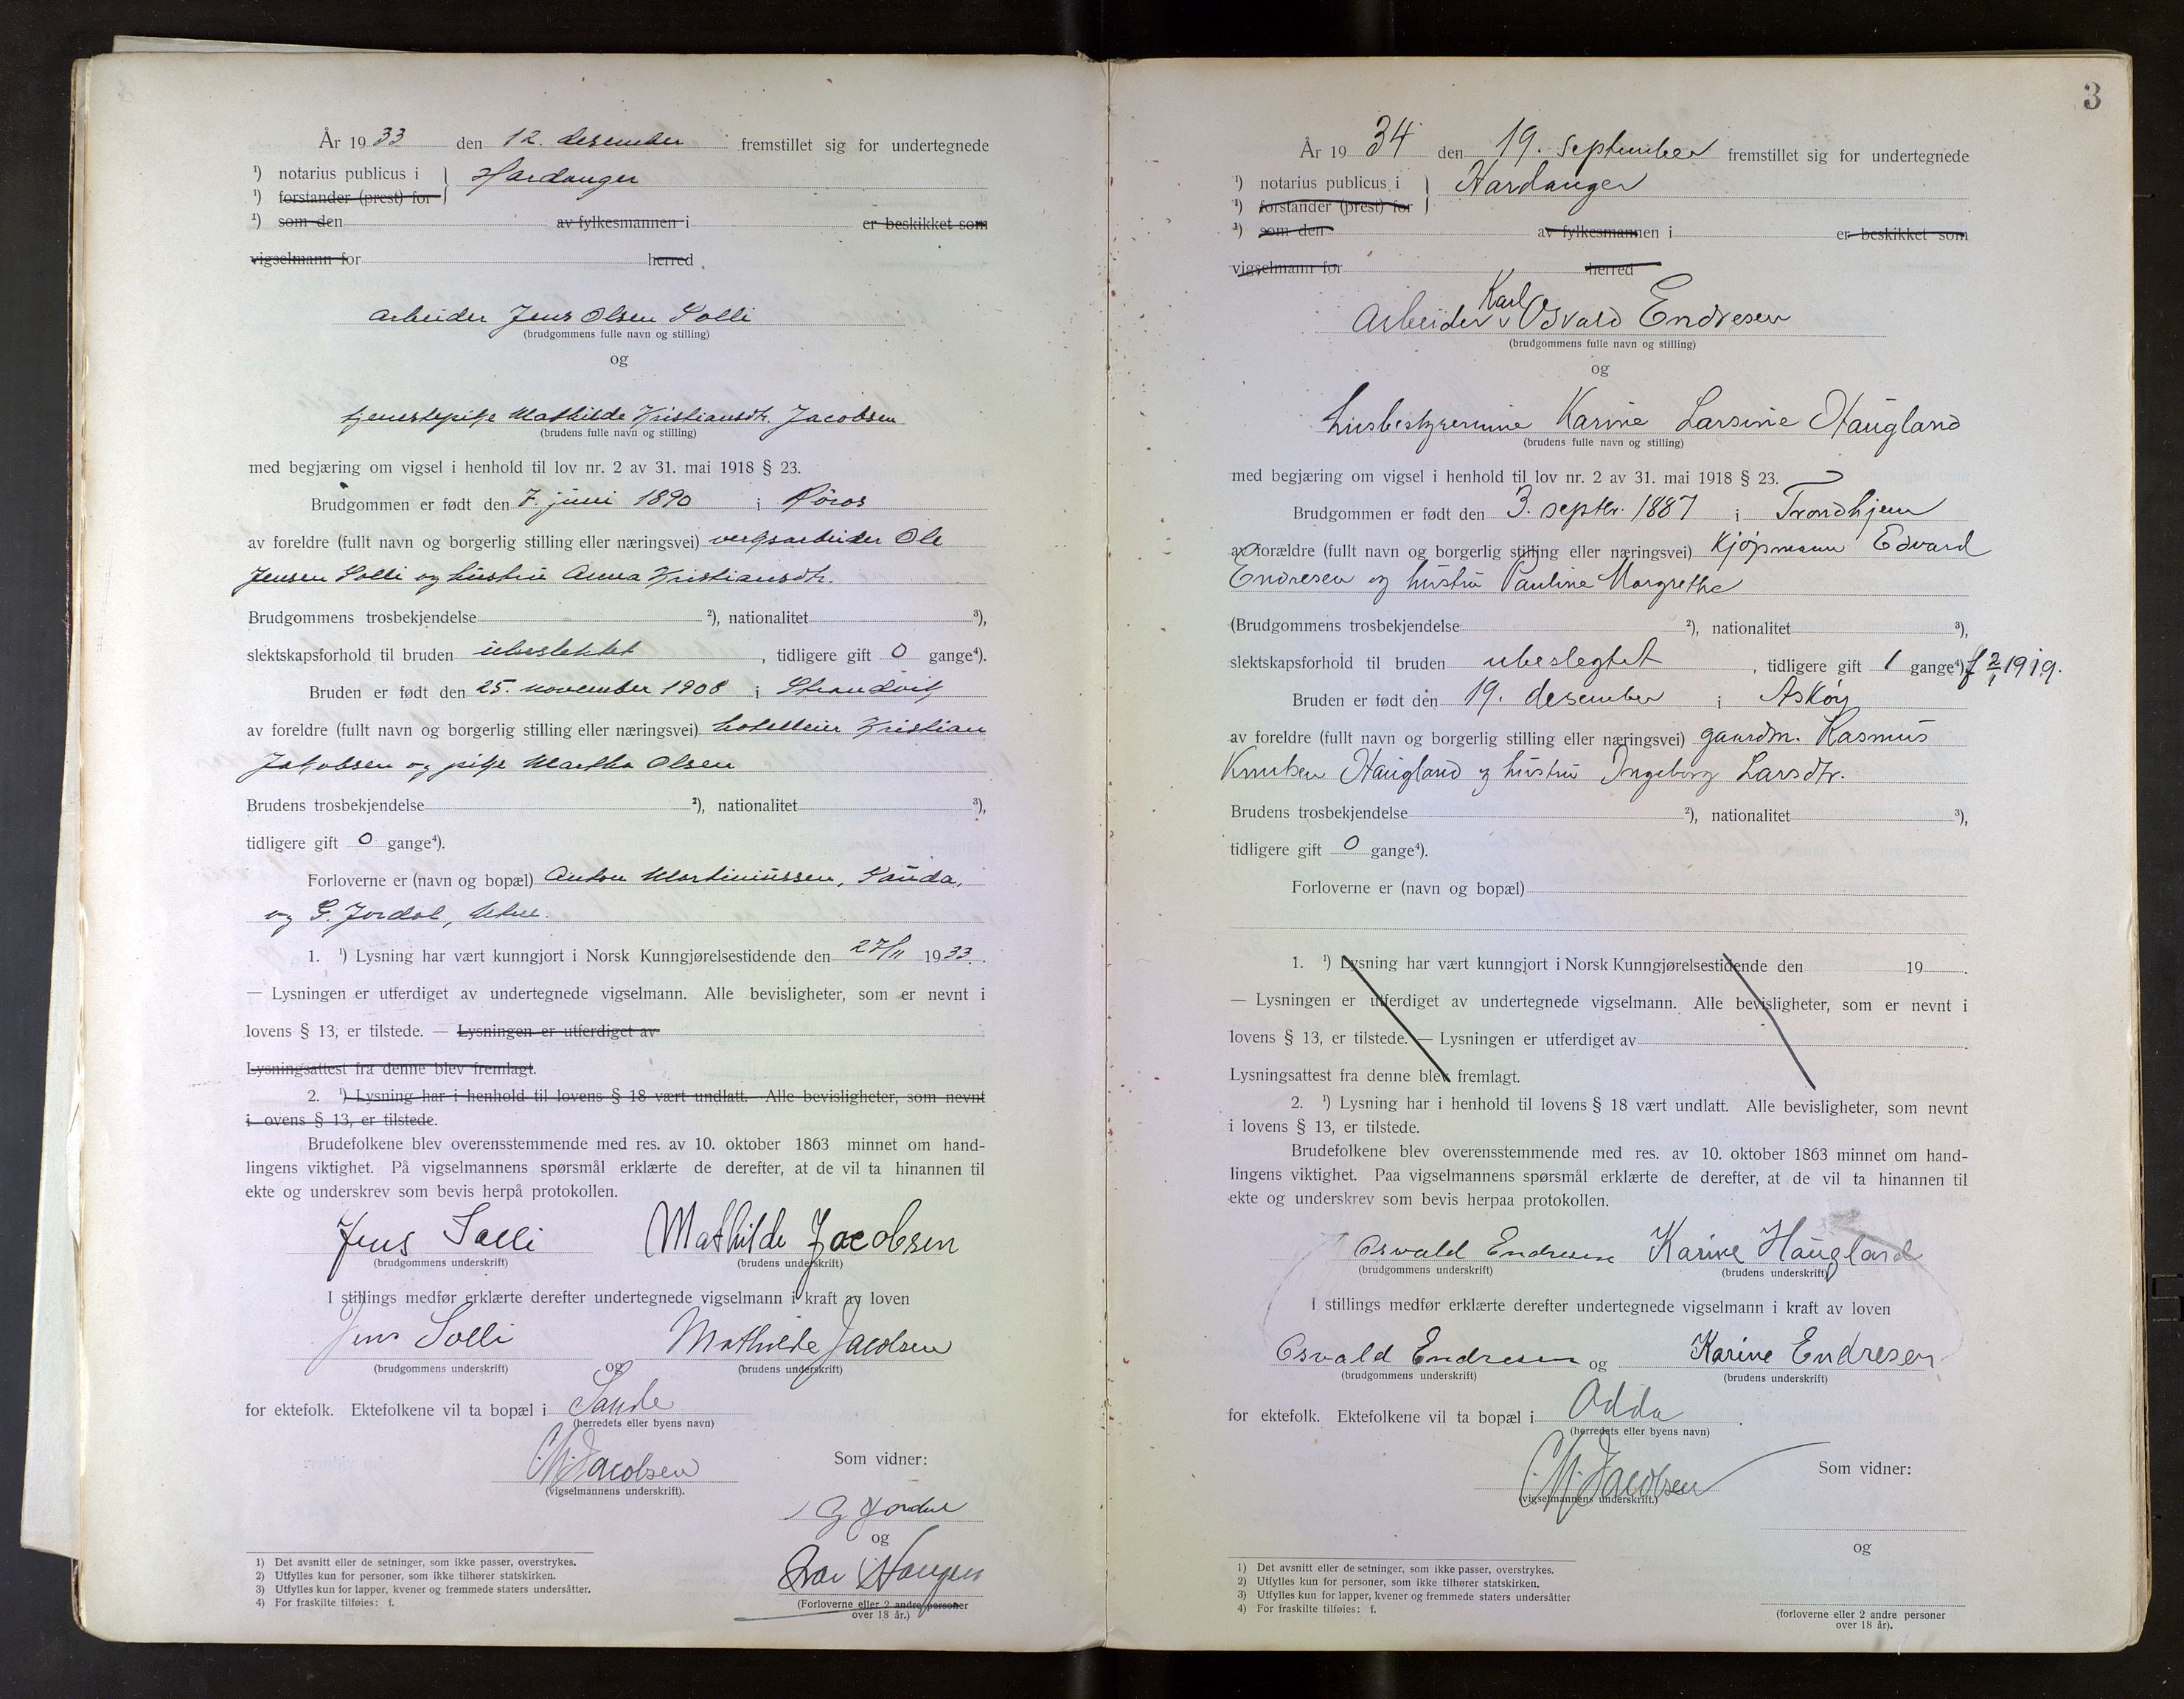 År 1933 den 12. desember fremstillet sig for undertegnede
¹) notarius publicus i } Hardanger
¹) forstander (prest) for
¹) som den av fylkesmannen i er beskikket som
vigselmann for herred
arbeider Jens Olsen Solli
(brudgommens fulle navn og stilling)
og
tjenestepike Mathilde Kristiansdtr. Jacobsen
(brudens fulle navn og stilling)
med begjæring om vigsel i henhold til lov nr. 2 av 31. mai 1918 § 23.
Brudgommen er født den 7. juni 1890 i Röros
av foreldre (fullt navn og borgerlig stilling eller næringsvei) verksarbeider Ole
Jensen Solli og hustru Anna Kristiansdtr.
Brudgommens trosbekjendelse ²), nationalitet ³),
slektskapsforhold til bruden ubeslektet, tidligere gift 0 gange⁴).
Bruden er født den 25. november 1908 i Strandvik
av foreldre (fullt navn og borgerlig stilling eller næringsvei) hotelleier Kristian
Jakobsen og pike Martha Olsen
Brudens trosbekjendelse ²), nationalitet ³),
tidligere gift 0 gange⁴).
Forloverne er (navn og bopæl) Anton Martiniussen, Sauda,
og G. Jordal, Utne.
1. ¹) Lysning har vært kunngjort i Norsk Kunngjørelsestidende den 27/11 1933.
— Lysningen er utferdiget av undertegnede vigselmann. Alle bevisligheter, som er nevnt i
lovens § 13, er tilstede. — Lysningen er utferdiget av
Lysningsattest fra denne blev fremlagt.
2. ¹) Lysning har i henhold til lovens § 18 vært undlatt. Alle bevisligheter, som nevnt
i ovens § 13, er tilstede.
Brudefolkene blev overensstemmende med res. av 10. oktober 1863 minnet om hand-
lingens viktighet. På vigselmannens spørsmål erklærte de derefter, at de vil ta hinannen til
ekte og underskrev som bevis herpå protokollen.
Jens Solli Mathilde Jacobsen
(brudgommens underskrift) (brudens underskrift)
I stillings medfør erklærte derefter undertegnede vigselmann i kraft av loven
Jens Solli og Mathilde Jacobsen
(brudgommens underskrift) (brudens underskrift)
for ektefolk. Ektefolkene vil ta bopæl i Saude
(herredets eller byens navn)
C.M. Jacobsen
(vigselmannens underskrift).
Som vidner:
G Jordal
og
(Forloverne eller 2 andre personer
over 18 år.)
1) Det avsnitt eller de setninger, som ikke passer, overstrykes.
2) Utfylles kun for personer, som ikke tilhører statskirken.
3) Utfylles kun for lapper, kvener og fremmede staters undersåtter.
4) For fraskilte tilføies: f.
3
År 1934 den 19. september fremstillet sig for undertegnede
¹) notarius publicus i } Hardanger
¹) forstander (prest) for
¹) som den av fylkesmannen i er beskikket som
vigselmann for herred
Arbeider Karl Osvald Endresen
(brudgommens fulle navn og stilling)
og
husbestyrerinne Karine Larsine Haugland
(brudens fulle navn og stilling)
med begjæring om vigsel i henhold til lov nr. 2 av 31. mai 1918 § 23.
Brudgommen er født den 3. septbr. 1887 i Trondhjem
av forældre (fullt navn og borgerlig stilling eller næringsvei) kjöpmann Edvard
Endresen og hustru Pauline Margrethe
(Brudgommens trosbekjendelse ²), nationalitet ³),
slektskapsforhold til bruden ubeslegtet, tidligere gift 1 gange⁴) f 2/1 1919.
Bruden er født den 19. desember i Asköy
av foreldre (fullt navn og borgerlig stilling eller næringsvei) gaardm. Rasmus
Knutsen Haugland og hustru Ingeborg Larsdtr.
Brudens trosbekjendelse ²), nationalitet ³),
tidligere gift 0 gange⁴).
Forloverne er (navn og bopæl)
1. ¹) Lysning har vært kunngjort i Norsk Kunngjørelsestidende den 19 .
— Lysningen er utferdiget av undertegnede vigselmann. Alle bevisligheter, som er nevnt i
lovens § 13, er tilstede. — Lysningen er utferdiget av
Lysningsattest fra denne blev fremlagt.
2. ¹) Lysning har i henhold til lovens § 18 vært undlatt. Alle bevisligheter, som nevnt
i lovens § 13, er tilstede.
Brudefolkene blev overensstemmende med res. av 10. oktober 1863 minnet om hand-
lingens viktighet. Paa vigselmannens spørsmål erklærte de derefter, at de vil ta hinannen til
ekte og underskrev som bevis herpaa protokollen.
Osvald Endresen Karine Haugland
(brudgommens underskrift) (brudens underskrift)
I stillings medfør erklærte derefter undertegnede vigselmann i kraft av loven
Osvald Endresen og Karine Endresen
(brudgommens underskrift) (brudens underskrift)
for ektefolk. Ektefolkene vil ta bopæl i Odda.
(herredets eller byens navn)
C.M. Jacobsen
(vigselmannens underskrift.)
Som vidner:
og
(forloverne eller 2 andre personer
over 18 år).
1) Det avsnitt eller de setninger, som ikke passer, overstrykes.
2) Utfylles kun for personer, som ikke tilhører statskirken.
3) Utfylles kun for lapper, kvener og fremmede staters undersåtter
4) For fraskilte tilføies: f.